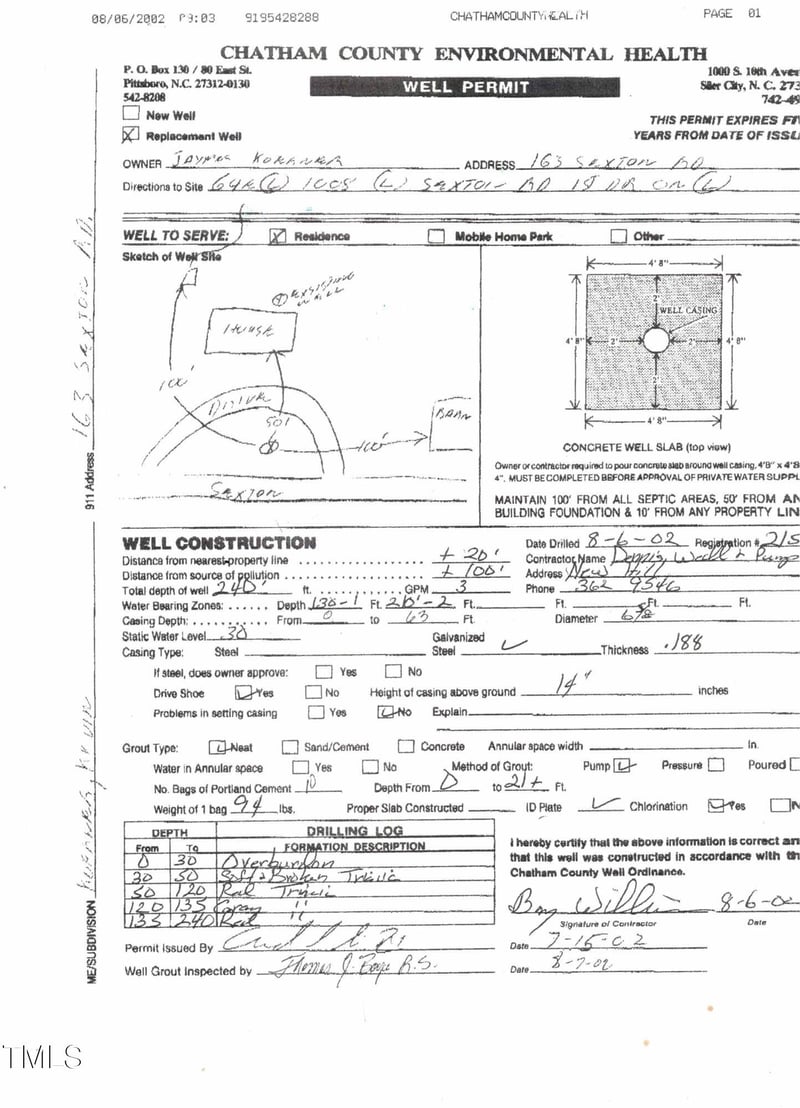 08/06/2002 09:03 9195428288 CHATHAMCOUNTYHEALTH PAGE 01
CHATHAM COUNTY ENVIRONMENTAL HEALTH
P. O. Box 130 / 80 East St.
Pittsboro, N.C. 27312-0130
542-8208
WELL PERMIT
1000 S. 10th Aven
Siler City, N. C. 273
742-49
New Well
Replacement Well
THIS PERMIT EXPIRES FIV
YEARS FROM DATE OF ISSU
OWNER ADDRESS 163 SEXTON RD
Directions to Site 64E (L) 1008 (L) SEXTON RD 1ST DR ON (L)
WELL TO SERVE: Residence Mobile Home Park Other
Sketch of Well Site
EXISTING WELL
HOUSE
100'
DRIVE
50'
100'
BARN
SEXTON
4' 8"
2'
WELL CASING
4' 8" 2' 2' 4' 8"
2'
4' 8"
CONCRETE WELL SLAB (top view)
Owner or contractor required to pour concrete slab around well casing, 4'8" x 4'8
4". MUST BE COMPLETED BEFORE APPROVAL OF PRIVATE WATER SUPPL
MAINTAIN 100' FROM ALL SEPTIC AREAS, 50' FROM AN
BUILDING FOUNDATION & 10' FROM ANY PROPERTY LIN
911 Address 163 SEXTON RD.
WELL CONSTRUCTION
Date Drilled 8-6-02 Registration # 215
Distance from nearest property line + 20'
Contractor Name Well & Pump
Distance from source of pollution + 100'
Address New Hill
Total depth of well 240' ft. GPM 3
Phone 362 9546
Water Bearing Zones: Depth 130-1 Ft. 210'-2 Ft. Ft. Ft. Ft.
Casing Depth: From 0 to 63 Ft. Diameter 6 5/8
Static Water Level 30
Casing Type: Steel Galvanized Steel Thickness .188
If steel, does owner approve: Yes No
Drive Shoe Yes No Height of casing above ground 14" inches
Problems in setting casing Yes No Explain
Grout Type: Neat Sand/Cement Concrete Annular space width In.
Water in Annular space Yes No Method of Grout: Pump Pressure Poured
No. Bags of Portland Cement 10 Depth From 0 to 21+ Ft.
Weight of 1 bag 94 lbs. Proper Slab Constructed ID Plate Chlorination Yes N
DEPTH DRILLING LOG
From To FORMATION DESCRIPTION
0 30 Overburdon
30 50 Soft & Broken
50 120
120 135 Gray "
135 240 "
I hereby certify that the above information is correct an
that this well was constructed in accordance with th
Chatham County Well Ordinance.
8-6-02
Signature of Contractor Date
Permit Issued By Date 7-15-02
Well Grout Inspected by Thomas J. R.S. Date 8-7-02
ME/SUBDIVISION
TMLS